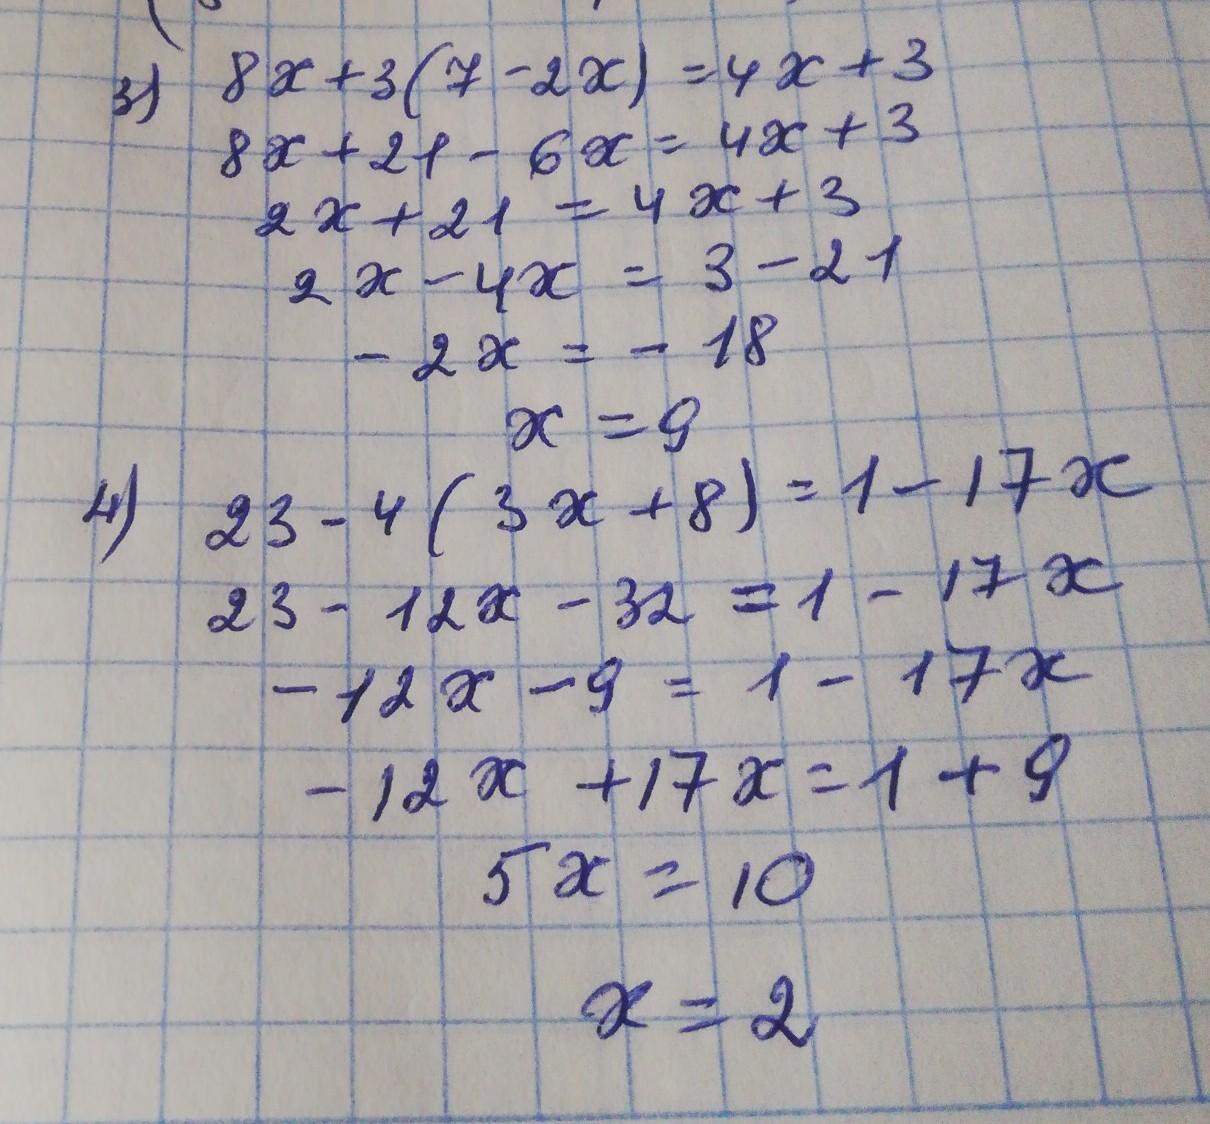 3) 8x+3(7-2x)=4x+3
8x+21-6x=4x+3
2x+21=4x+3
2x-4x=3-21
-2x=-18
x=9
4) 23-4(3x+8)=1-17x
23-12x-32=1-17x
-12x-9=1-17x
-12x+17x=1+9
5x=10
x=2